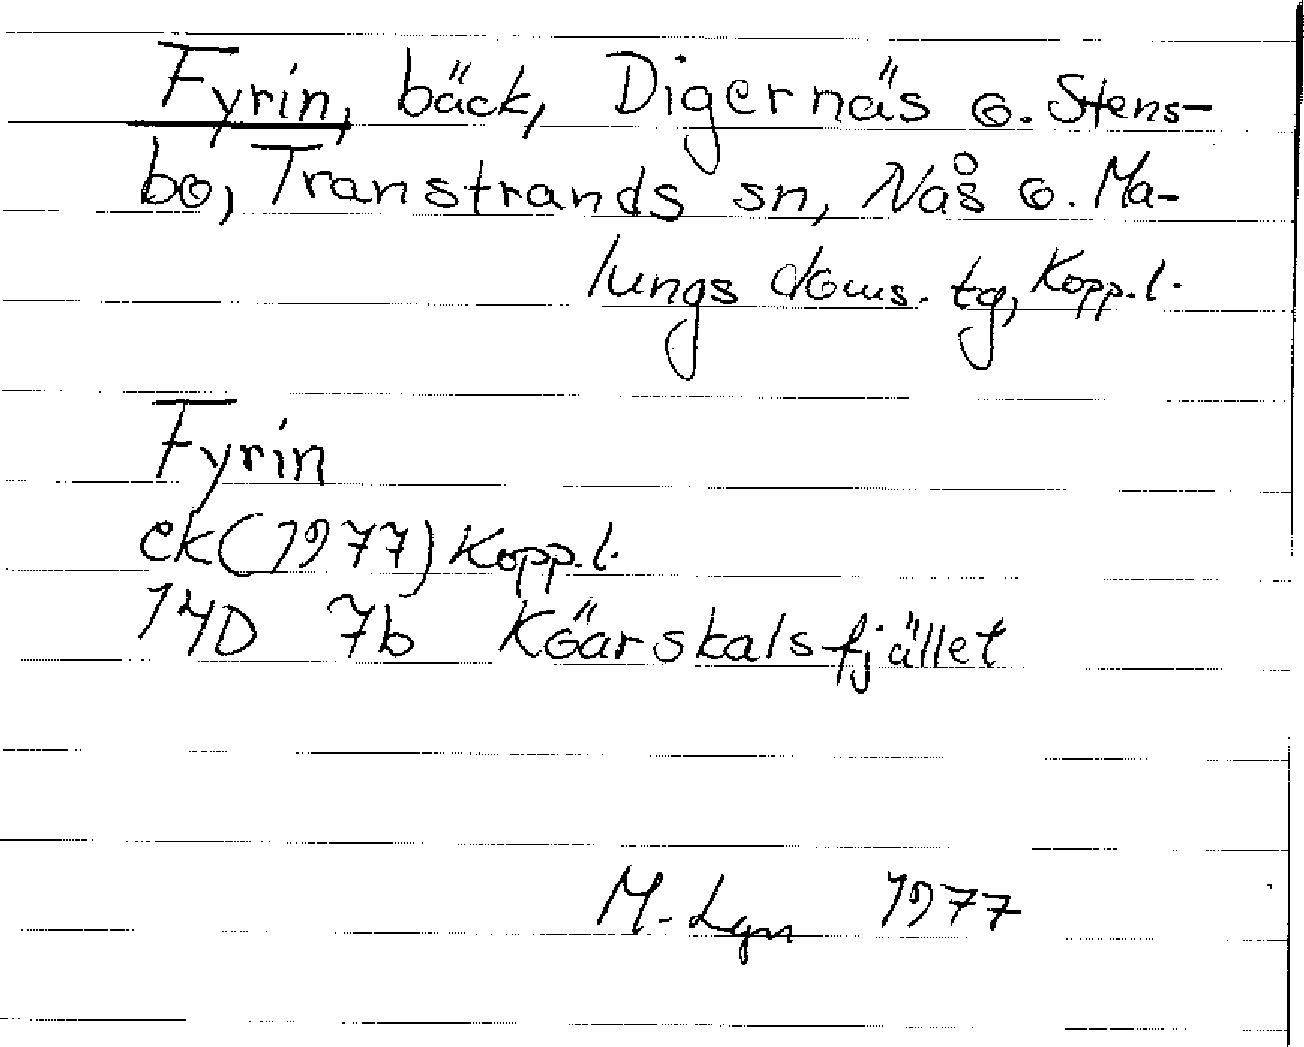 Fyrin, bäck, Digernäs o. Stens-
bo, Transtrands sn, Nås o. Ma-
lungs doms. tg, Kopp. l.
Fyrin
ek (1977) Kopp. l.
14D 7b Köarskalsfjället
M. Lgn 1977